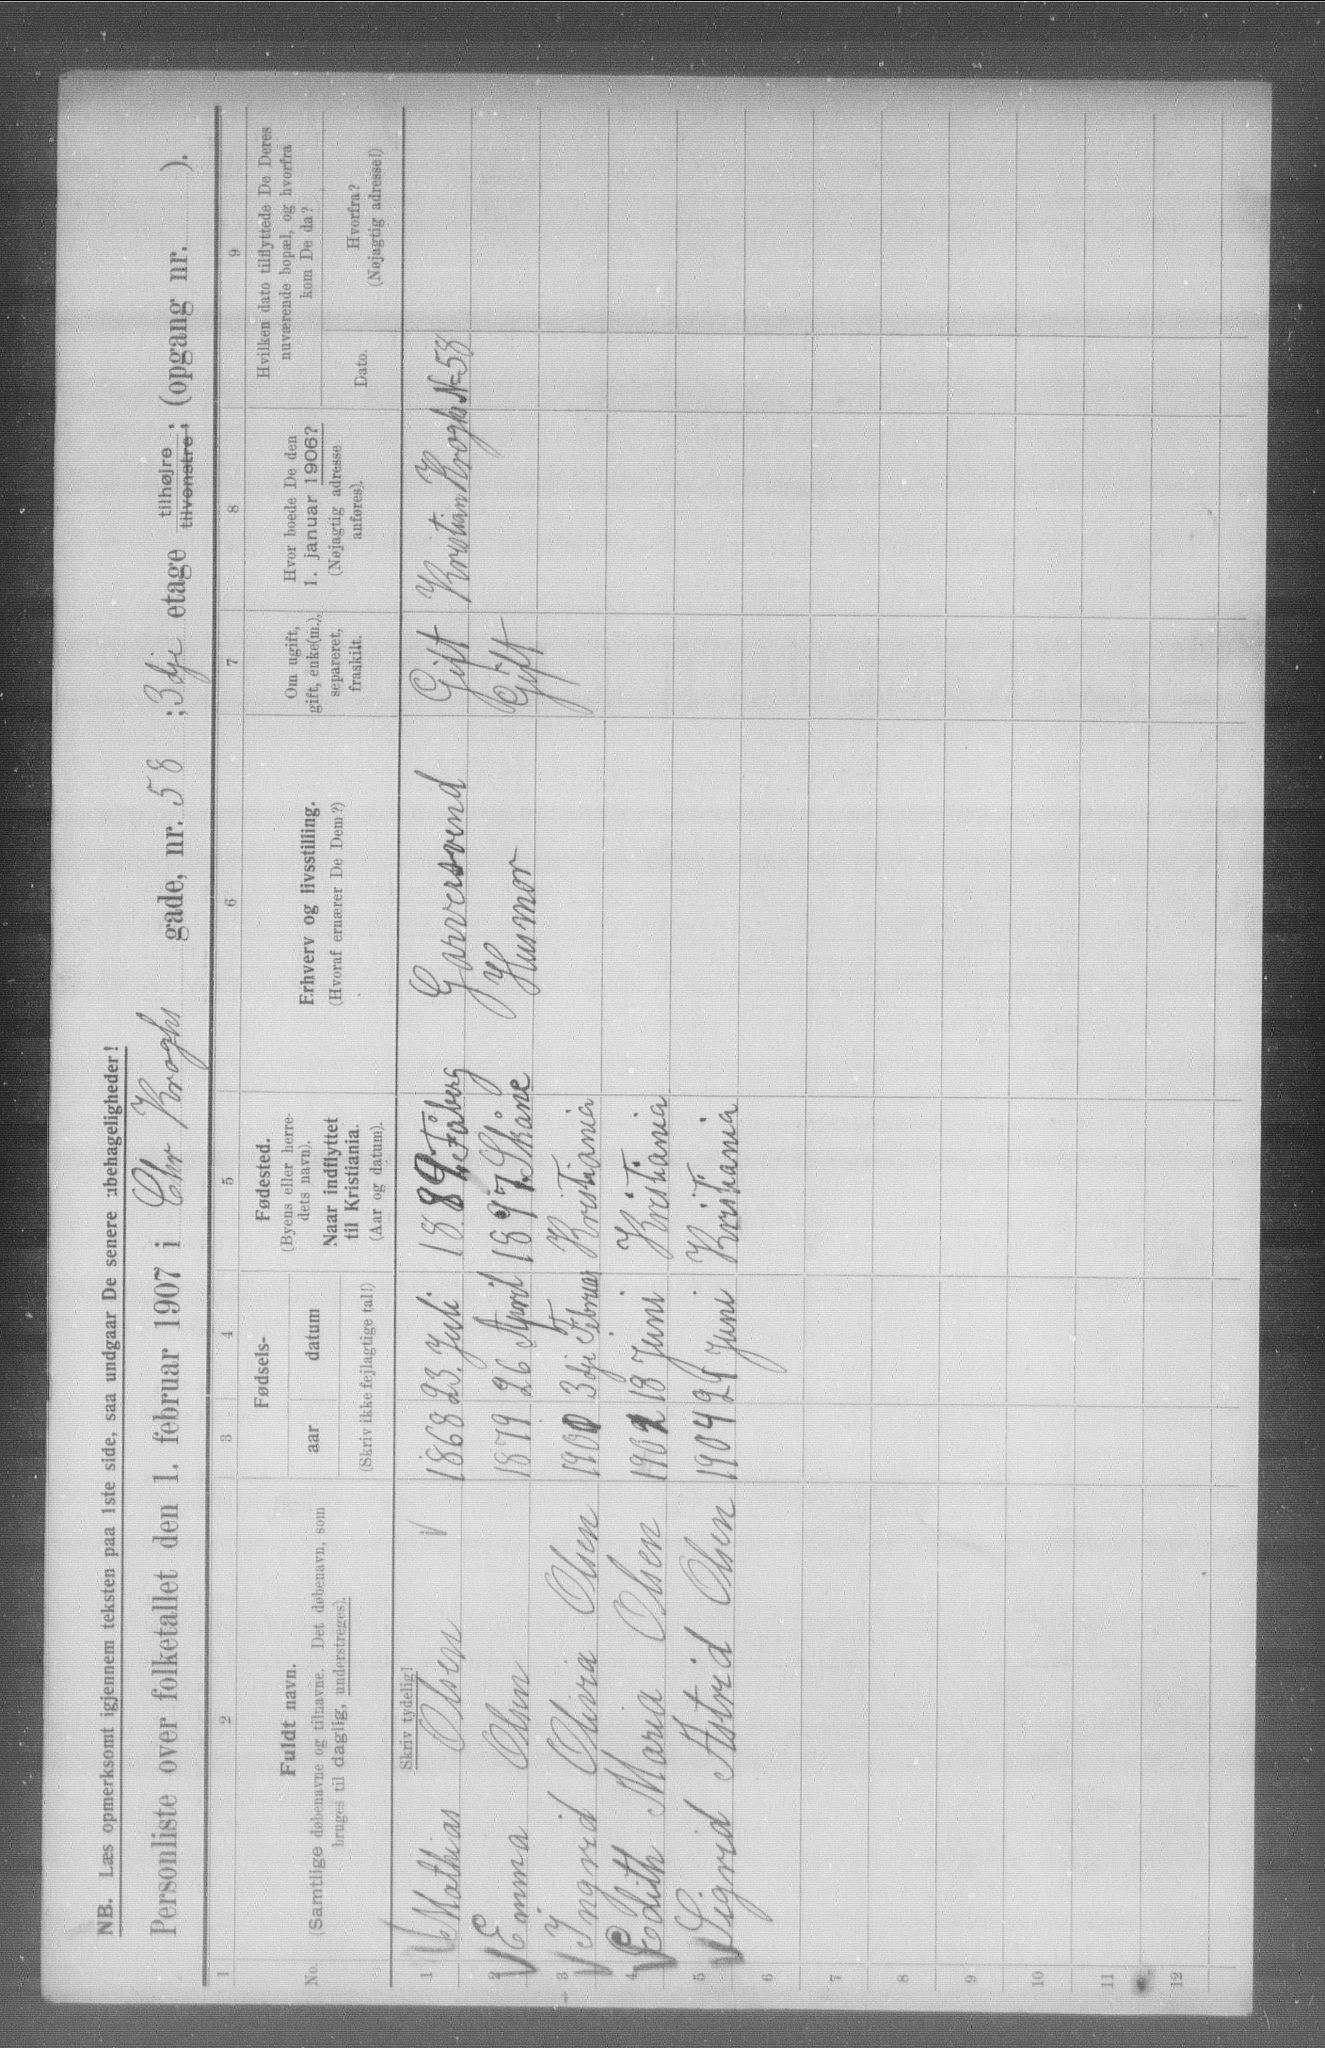 NB. Læs opmerksomt igjennem teksten paa 1ste side, saa undgaar De senere ubehageligheder!
Personliste over folketallet den 1. februar 1907 i Chr Kroghs gade, nr. 58 ; 3dje etage tilhøjre, tilvenstre, (opgang nr. ).
1 2 3 4 5 6 7 8 9
No.
Fuldt navn.
(Samtlige døbenavne og tilnavne. Det døbenavn, som
bruges til daglig, understreges).
Fødsels-
aar datum
(Skriv ikke fejlagtige tal!)
Fødested.
(Byens eller herre-
dets navn).
Naar indflyttet
til Kristiania.
(Aar og datum).
Erhverv og livsstilling.
(Hvoraf ernærer De Dem?)
Om ugift,
gift, enke(m.),
separeret,
fraskilt.
Hvor boede De den
1. januar 1906?
(Nøjagtig adresse
anføres).
Hvilken dato tilflyttede De Deres
nuværende bopæl, og hvorfra
kom De da?
Dato.
Hvorfra?
(Nøjagtig adresse!)
Skriv tydelig!
1 Mathias Olsen 1868 23. Juli 1889 Fåberg Garversvend Gift Kristian Kroghs N-58
2 Emma Olsen 1879 26 April 1897 Skåne Husmor Gift
3 Ingrid Olivia Olsen 1900 3dji Februar Kristiania
4 Edith Maria Olsen 1902 18 Juni Kristiania
5 Sigrid Astrid Olsen 1904 29 Juni Kristiania
6
7
8
9
10
11
12